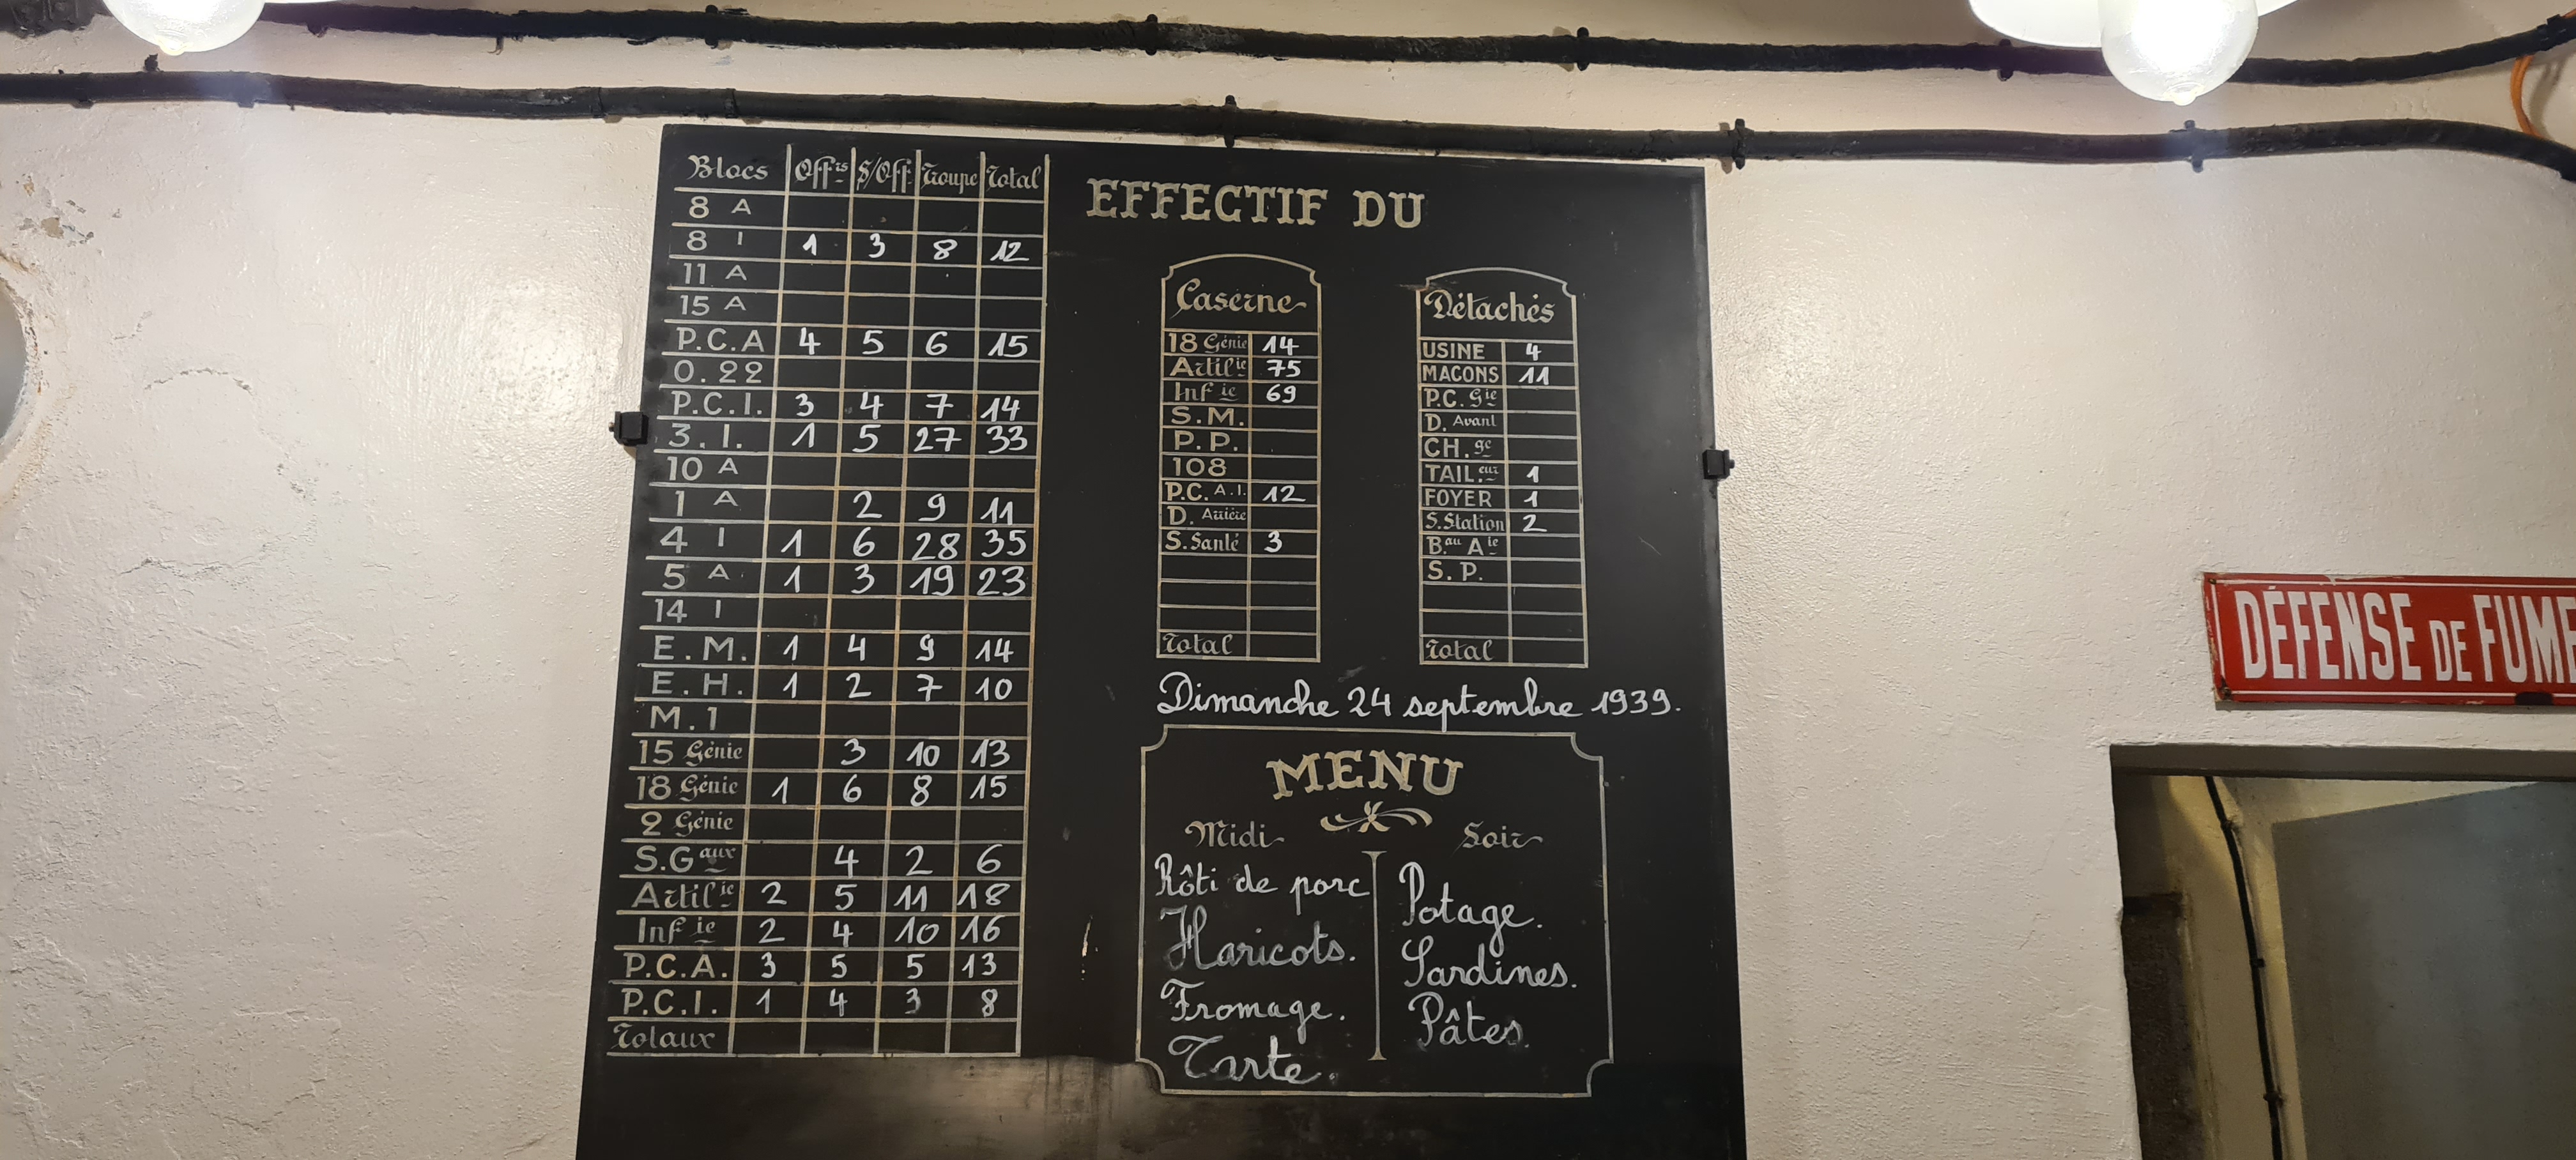 Blocs Off.rs S/Off. Troupe Total
8 A
8 I 1 3 8 12
11 A
15 A
P.C.A 4 5 6 15
O.22
P.C.I. 3 4 7 14
3. I. 1 5 27 33
10 A
1 A 2 9 11
4 I 1 6 28 35
5 A 1 3 19 23
14 I
E.M. 1 4 9 14
E.H. 1 2 7 10
M.1
15 Génie 3 10 13
18 Génie 1 6 8 15
2 Génie
S.Gaux 4 2 6
Artilie 2 5 11 18
Infie 2 4 10 16
P.C.A. 3 5 5 13
P.C.I. 1 4 3 8
Totaux
EFFECTIF DU
Caserne
18 Génie 14
Artilie 75
Infie 69
S.M.
P.P.
108
P.C. A.I. 12
D. Arrière
S.Santé 3
Total
Détachés
USINE 4
MACONS 11
P.C. Gie
D. Avant
CH. ge
TAIL.eur 1
FOYER 1
S.Station 2
B.au Aie
S. P.
Total
Dimanche 24 septembre 1939.
MENU
Midi
Rôti de porc
Haricots.
Fromage.
Tarte.
Soir
Potage.
Sardines.
Pâtes.
DÉFENSE DE FUME